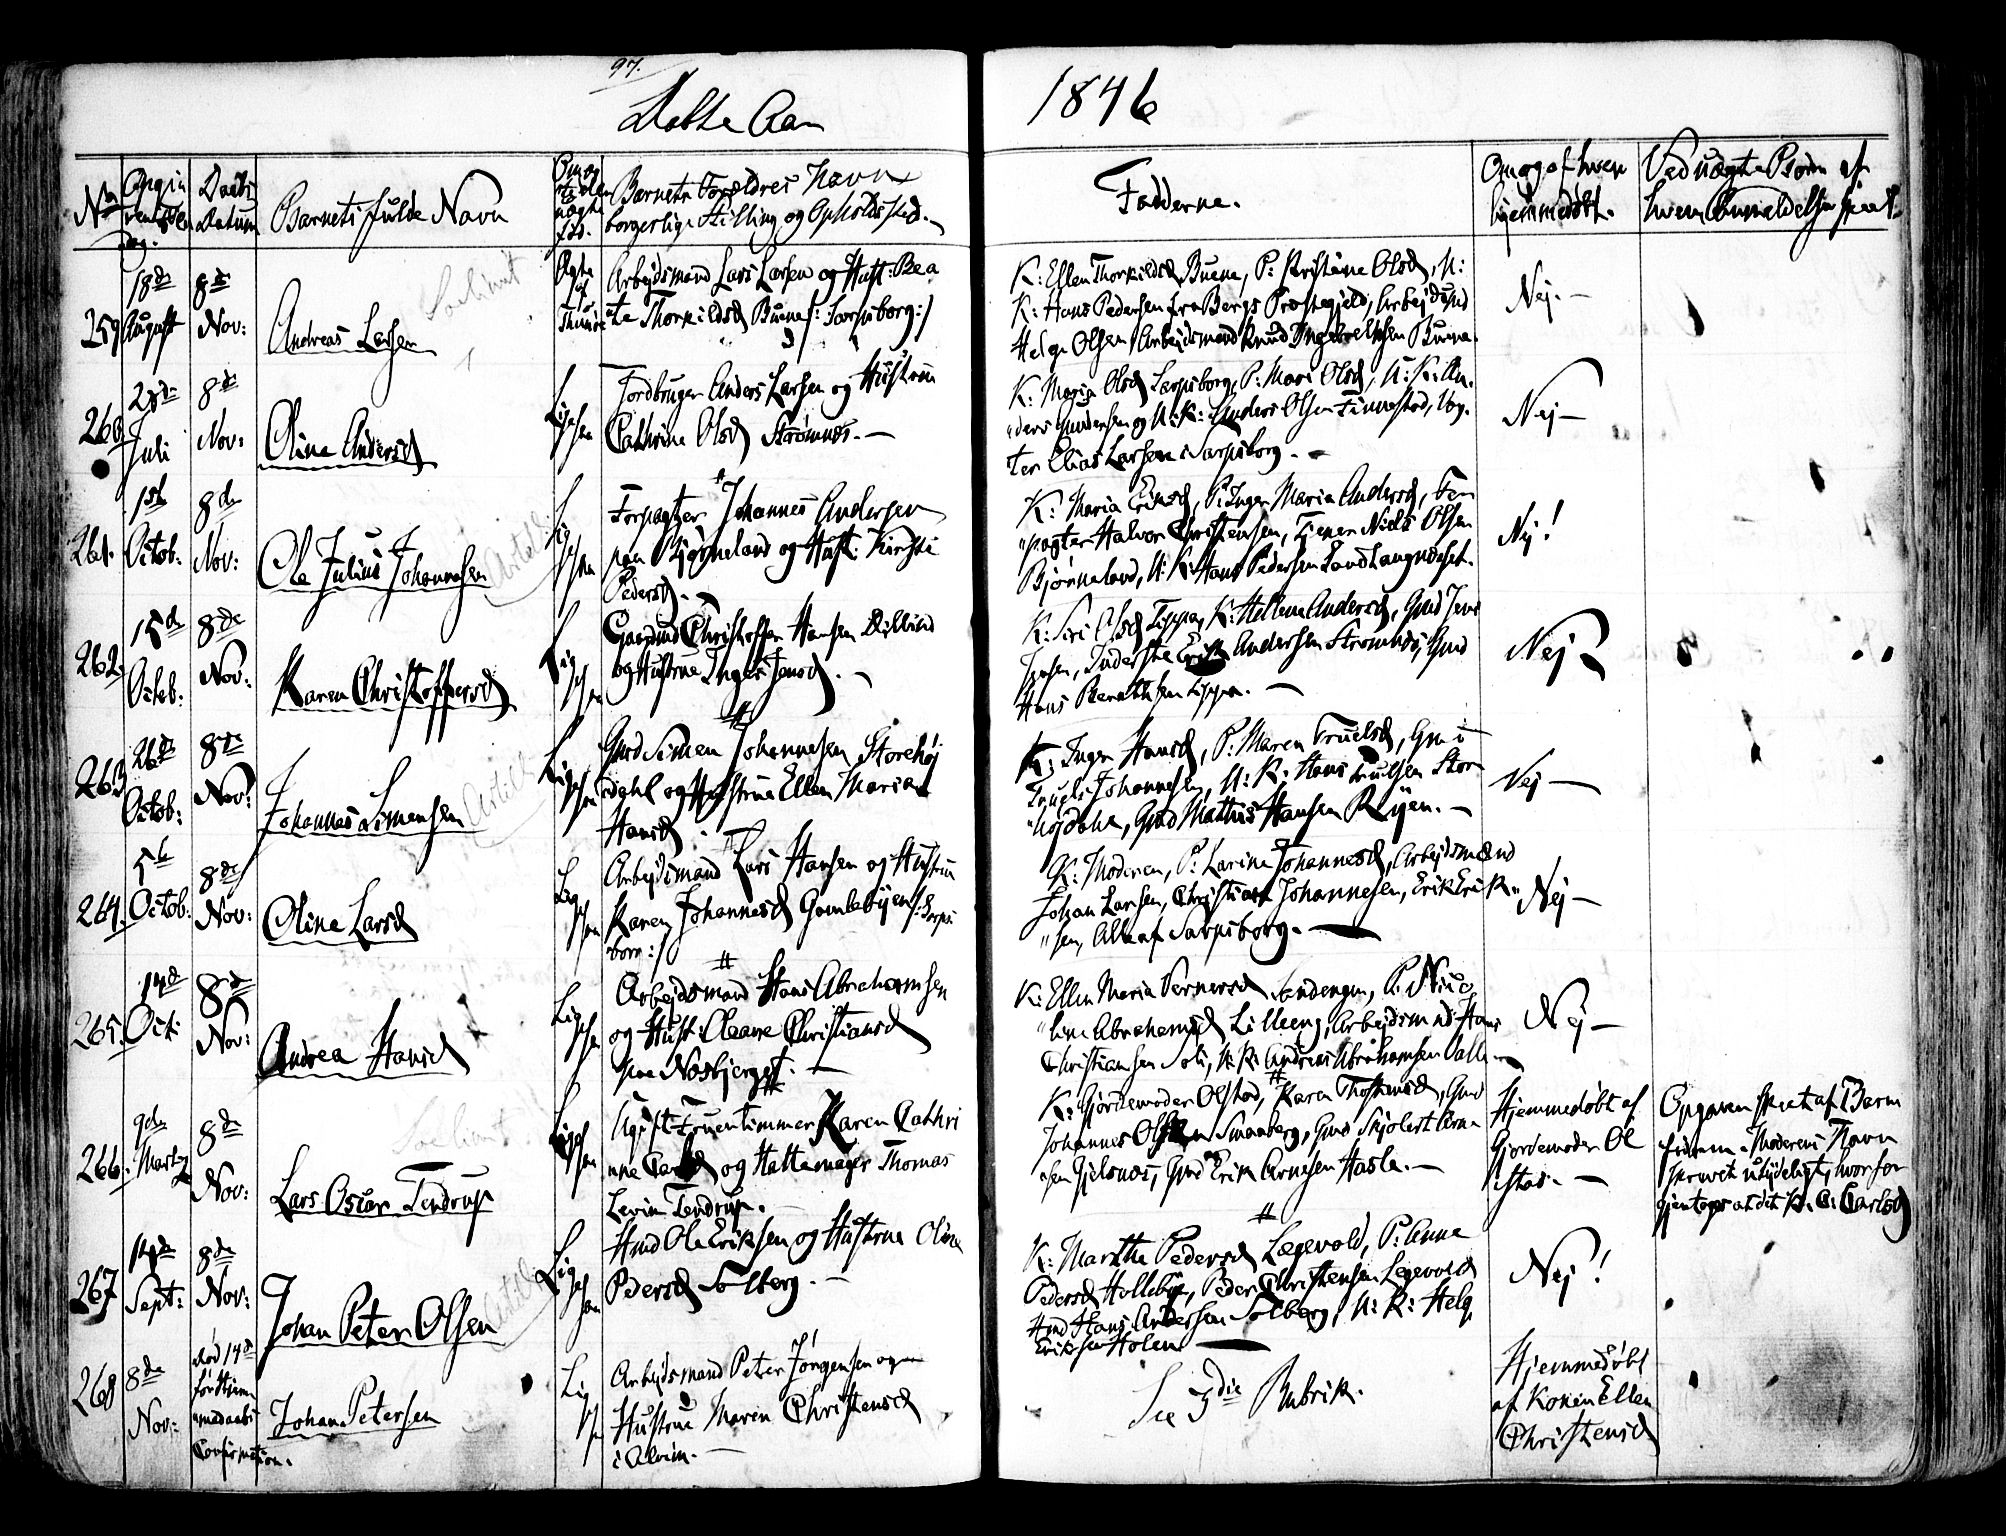 97.
Døbte Aar 1846
No Angiven Fødselsdag. Daabs Datum Barnets fulde Navn Om ægte eller uægte fød. Barnets Forældres Navn borgerlige Stilling og Opholdssted. Fadderne. Om og af hvem hjemmedøbt. Ved uægte Børn af hvem Anmeldelsen skeet.
259 18de August 8de Nov: Andreas Larsen Ægte
Arbejdsmand Lars Larsen og Hust: Bea
te Thorkildsd Buene /: Sarpsborg :/
K: Ellen Thorkildsd Buene, P: Kristine Olsd, U:
K: Hans Pedersen fra Bergs Præstegjeld, Arbejdsmd
Helge Olsen, Arbejdsmand Knud Ingebrethsen Buene.
Nej. —
260 28de Juli 8de Nov: Oline Andersd Ligesaa
Jordbruger Anders Larsen og Hustrue
Cathrine Olsd Strømnes. —
K: Maria Olsd Sarpsborg, P: Mari Olsd, U: K: An
ders Gundersen og U: K: Anders Olsen Finnestad, Vog
ter Elias Larsen i Sarpsborg. —
Nej —
261. 1ste Octob: 8de Nov: Ole Julius Johannesen Ligesaa
Forpagter Johannes Andersen
paa Bjørneland og Hust: Kirsti
Pedersd. —
K: Maria Ericsd, P: Inger Maria Andersd, For
pagter Halvor Christensen, Tjener Niels Olsen
Bjørneland, U: K: Hans Pedersen Sand Langnæset.
Nej!
262. 15de Octob: 8de Nov: Karen Christoffersd Ligesaa
Gaardmd Christoffer Hansen
og Hustrue Inger Jensd. —
K: Siri Olsd Tippen, K: Hellene Andersd, Gmd Jens
Jensen, Inderste Erik Andersen Strømnes, Gmd
Hans Bernthsen Tippen. —
Nej
263 26de Octob: 8de Nov: Johannes Simensen Ligesaa
Gmd Simen Johannesen Storehøj
dahl og Hustrue Ellen Maria
Hansd. —
K: Inger Hansd, P: Maren Truelsd, Gmd
Truels Johannesen, U: K: Hans Truelsen Stor
højdahl, Gmd Mathis Hansen Ryen. —
Nej —
264. 5te Octob: 8de Nov: Oline Larsd Ligesaa
Arbejdsmand Lars Hansen og Hustrue
Karen Johannesd Gamlebyen /: Sarps
borg :/
K: Moderen, P: Larine Johannesd, Arbejdsmænd
Johan Larsen, Christian Johannesen, Erik Erik
sen, Alle af Sarpsborg. —
Nej —
265. 14de Oct: 8de Nov: Andrea Hansd Ligesaa
Arbejdsmand Hans Abrahamsen
og Hust: Oleane Christiansd
paa Næsbjerget. —
K: Ellen Maria Vernersd Sandengen, P: Nico
line Abrahamsd Lilleeng, Arbejdsmnd Hans
Christiansen Soli, U: K: Andreas Abrahamsen Valle —
Nej —
266. 9de Marts 8de Nov: Lars Oscar Tendrup Ligesaa
Ugift Fruentimmer Karen Cathri
nne Carlsd og Hattemager Thomas
Levin Tendrup.
K: Gjordemoder Olstad, Karen Thostensd, Gmd
Johannes Olsen Svanberg, Gmd Skjolert Arne
sen Gjelsnæs, Gmd Erik Arnesen Hasle. —
Hjemmedøbt af
Gjordemoder Ol
stad. —
Opgaven skeet af Barn
faderen. Moderens Navn
skrevet utydeligt, hvorfor
gjentages at det K. C. Carlsd
267 14de Sept: 8de Nov: Johan Peter Olsen Ligesaa
Hmd Ole Eriksen og Hustrue Oline
Pedersd Solberg. —
K: Marthe Pedersd Lægevold, P: Anne
Pedersd Hellebye, Peder Christensen Legevold
Hmd Hans Andersen Solberg, U: K: Helge
Eriksen Holen —
Nej!
268 8de Nov: død 14de før Hjem medaabs Confirmation. Johan Petersen Lig
Arbejdsmand Peter Jørgensen og
Hustrue Maren Christensd
i Alvim. —
See 3die Rubrik.
Hjemmedøbt
af Konen Ellen
Christensd